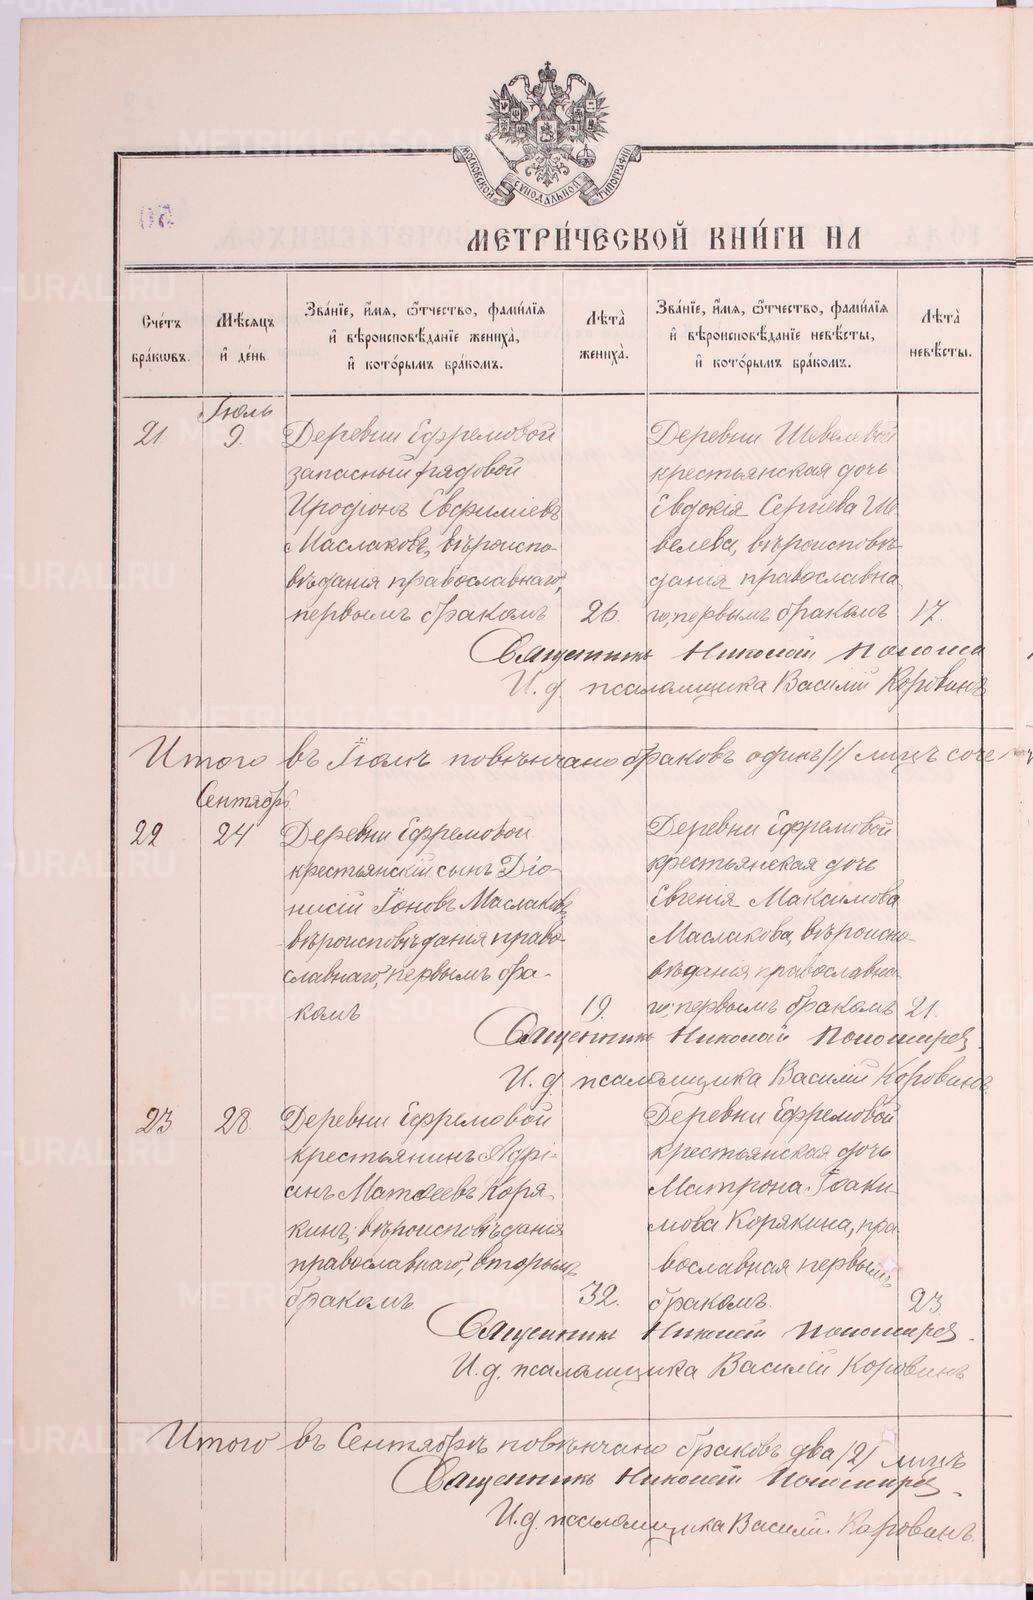 МОСКОВСКОЙ СѴНОДАЛЬНОЙ ТИПОГРАФІИ
МЕТРИ́ЧЕСКОЙ КНИ́ГИ НА
Сче́тъ бра́ковъ.
Мѣ́сяцъ и҆ де́нь.
Зва́нїе, и҆́мя, ѻ҆́тчество, фами́лїя
и҆ вѣроисповѣ́данїе жениха̀,
и҆ кото́рымъ бра́комъ.
Лѣ́та жениха̀.
Зва́нїе, и҆́мя, ѻ҆́тчество, фами́лїя
и҆ вѣроисповѣ́данїе невѣ́сты,
и҆ кото́рымъ бра́комъ.
Лѣ́та невѣ́сты.
Іюль
21
9.
Деревни Ефремовой
запасный рядовой
Иродіонъ Евфиміевъ
Маслаковъ, вѣроиспо-
вѣданія православнаго,
первымъ бракомъ
26.
Деревни Шевелевой
крестьянская дочь
Евдокія Сергіева Ше
велева, вѣроисповѣ-
данія православна
го, первымъ бракомъ
17.
Священникъ Николай
И. д. псаломщика Василій Коровинъ
Итого въ Іюлѣ повѣнчано браковъ одинъ /1/ лицъ соче
Сентябрь
22
24
Деревни Ефремовой
крестьянскій сынъ Діо-
нисій Іоновъ Маслаковъ,
вѣроисповѣданія право-
славнаго, первымъ бра-
комъ
19.
Деревни Ефремовой
крестьянская дочь
Евгенія Максимова
Маслакова, вѣроиспо-
вѣданія православна
го, первымъ бракомъ
21.
Священникъ Николай
И. д. псаломщика Василій Коровинъ
23
28
Деревни Ефремовой
крестьянинъ Адрі-
анъ Матѳеевъ Коря
кинъ, вѣроисповѣданія
православнаго, вторымъ
бракомъ
32.
Деревни Ефремовой
крестьянская дочь
Матрона Іоаки-
мова Корякина, пра
вославная первымъ
бракомъ.
23.
Священникъ Николай
И. д. псаломщика Василій Коровинъ
Итого въ Сентябрѣ повѣнчано браковъ два /2/ лицъ
Священникъ Николай
И. д. псаломщика Василій Коровинъ.
METRIKI.GASO-URAL.RU